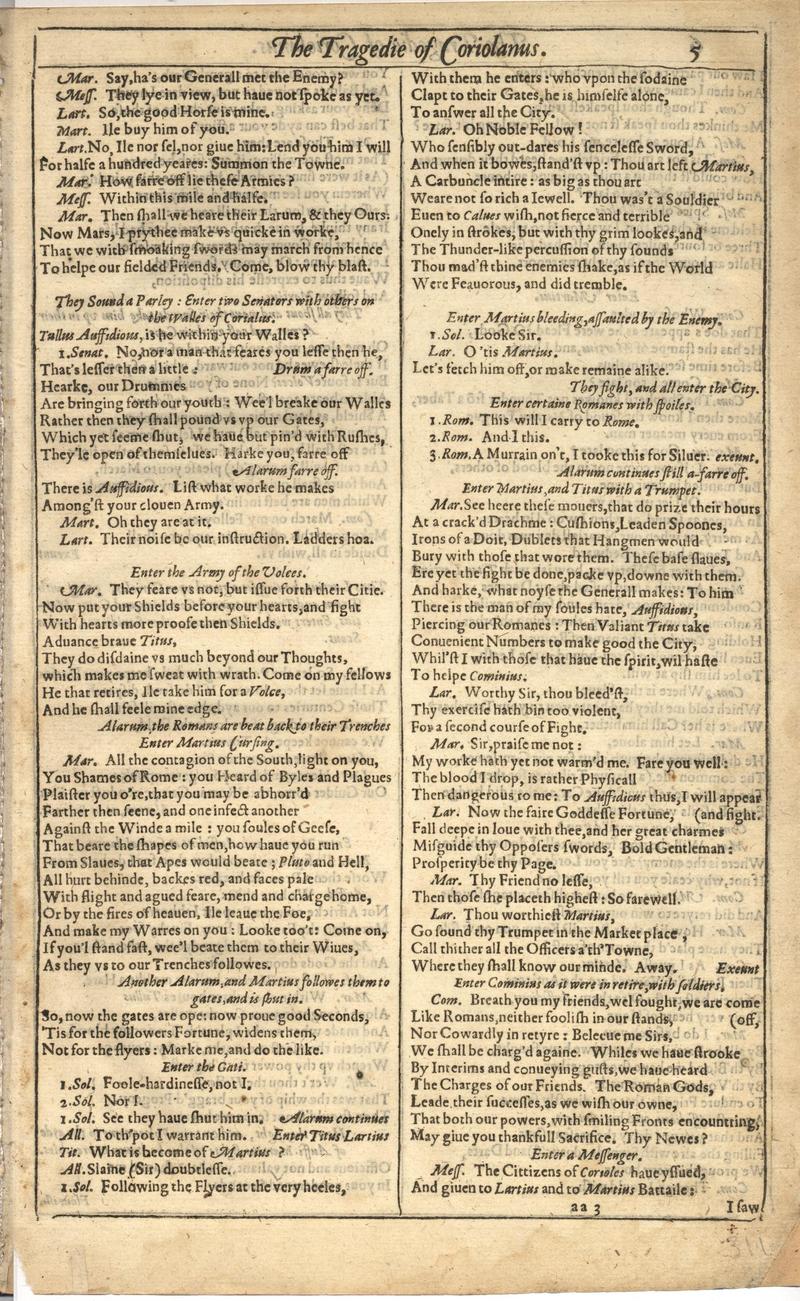 The Tragedie of Coriolanus. 5
Mar. Say, ha's our Generall met the Enemy?
Mess. They lye in view, but haue not spoke as yet.
Lart. So, the good Horse is mine.
Mart. Ile buy him of you.
Lart. No, Ile nor sel, nor giue him: Lend you him I will
For halfe a hundred yeares: Summon the Towne.
Mar. How farre off lie these Armies?
Mess. Within this mile and halfe.
Mar. Then shall we heare their Larum, & they Ours.
Now Mars, I prythee make vs quicke in worke,
That we with smoaking swords may march from hence
To helpe our fielded Friends. Come, blow thy blast.
They Sound a Parley: Enter two Senators with others on
the Walles of Corialus.
Tullus Auffidious, is he within your Walles?
1. Senat. No, nor a man that feares you lesse then he,
That's lesser then a little: Drum a farre off.
Hearke, our Drummes
Are bringing forth our youth: Wee'l breake our Walles
Rather then they shall pound vs vp our Gates,
Which yet seeme shut, we haue but pin'd with Rushes,
They'le open of themselues. Harke you, farre off
Alarum farre off.
There is Auffidious. List what worke he makes
Among'st your clouen Army.
Mart. Oh they are at it.
Lart. Their noise be our instruction. Ladders hoa.
Enter the Army of the Volces.
Mar. They feare vs not, but issue forth their Citie.
Now put your Shields before your hearts, and fight
With hearts more proofe then Shields.
Aduance braue Titus,
They do disdaine vs much beyond our Thoughts,
which makes me sweat with wrath. Come on my fellows
He that retires, Ile take him for a Volce,
And he shall feele mine edge.
Alarum, the Romans are beat back to their Trenches
Enter Martius Cursing.
Mar. All the contagion of the South, light on you,
You Shames of Rome: you Heard of Byles and Plagues
Plaister you o're, that you may be abhorr'd
Farther then seene, and one infect another
Against the Winde a mile: you soules of Geese,
That beare the shapes of men, how haue you run
From Slaues, that Apes would beate; Pluto and Hell,
All hurt behinde, backes red, and faces pale
With flight and agued feare, mend and charge home,
Or by the fires of heauen, Ile leaue the Foe,
And make my Warres on you: Looke too't: Come on,
If you'l stand fast, wee'l beate them to their Wiues,
As they vs to our Trenches followes.
Another Alarum, and Martius followes them to
gates, and is shut in.
So, now the gates are ope: now proue good Seconds,
'Tis for the followers Fortune, widens them,
Not for the flyers: Marke me, and do the like.
Enter the Gati.
1. Sol. Foole-hardinesse, not I.
2. Sol. Nor I.
1. Sol. See they haue shut him in. Alarum continues
All. To th'pot I warrant him. Enter Titus Lartius
Tit. What is become of Martius?
All. Slaine (Sir) doubtlesse.
1. Sol. Following the Flyers at the very heeles,
With them he enters: who vpon the sodaine
Clapt to their Gates, he is himselfe alone,
To answer all the City.
Lar. Oh Noble Fellow!
Who sensibly out-dares his sencelesse Sword,
And when it bowes, stand'st vp: Thou art left Martius,
A Carbuncle intire: as big as thou art
Weare not so rich a Iewell. Thou was't a Souldier
Euen to Calues wish, not fierce and terrible
Onely in strokes, but with thy grim lookes, and
The Thunder-like percussion of thy sounds
Thou mad'st thine enemies shake, as if the World
Were Feauorous, and did tremble.
Enter Martius bleeding, assaulted by the Enemy.
1. Sol. Looke Sir.
Lar. O 'tis Martius.
Let's fetch him off, or make remaine alike.
They fight, and all enter the City.
Enter certaine Romanes with spoiles.
1. Rom. This will I carry to Rome.
2. Rom. And I this.
3 Rom. A Murrain on't, I tooke this for Siluer. exeunt.
Alarum continues still a-farre off.
Enter Martius, and Titus with a Trumpet.
Mar. See heere these mouers, that do prize their hours
At a crack'd Drachme: Cushions, Leaden Spoones,
Irons of a Doit, Dublets that Hangmen would
Bury with those that wore them. These base slaues,
Ere yet the fight be done, packe vp, downe with them.
And harke, what noyse the Generall makes: To him
There is the man of my soules hate, Auffidious,
Piercing our Romanes: Then Valiant Titus take
Conuenient Numbers to make good the City,
Whil'st I with those that haue the spirit, wil haste
To helpe Cominius.
Lar. Worthy Sir, thou bleed'st,
Thy exercise hath bin too violent,
For a second course of Fight.
Mar. Sir, praise me not:
My worke hath yet not warm'd me. Fare you well:
The blood I drop, is rather Physicall
Then dangerous to me: To Auffidious thus, I will appear
Lar. Now the faire Goddesse Fortune, (and fight.
Fall deepe in loue with thee, and her great charmes
Misguide thy Opposers swords, Bold Gentleman:
Prosperity be thy Page.
Mar. Thy Friend no lesse,
Then those she placeth highest: So farewell.
Lar. Thou worthiest Martius,
Go sound thy Trumpet in the Market place,
Call thither all the Officers a'th'Towne,
Where they shall know our minde. Away. Exeunt
Enter Cominius as it were in retire, with soldiers.
Com. Breath you my friends, wel fought, we are come
Like Romans, neither foolish in our stands, (off,
Nor Cowardly in retyre: Beleeue me Sirs,
We shall be charg'd againe. Whiles we haue strooke
By Interims and conueying gusts, we haue heard
The Charges of our Friends. The Roman Gods,
Leade their successes, as we wish our owne,
That both our powers, with smiling Fronts encountring,
May giue you thankfull Sacrifice. Thy Newes?
Enter a Messenger.
Mess. The Cittizens of Corioles haue yssued,
And giuen to Lartius and to Martius Battaile:
aa 3 I saw